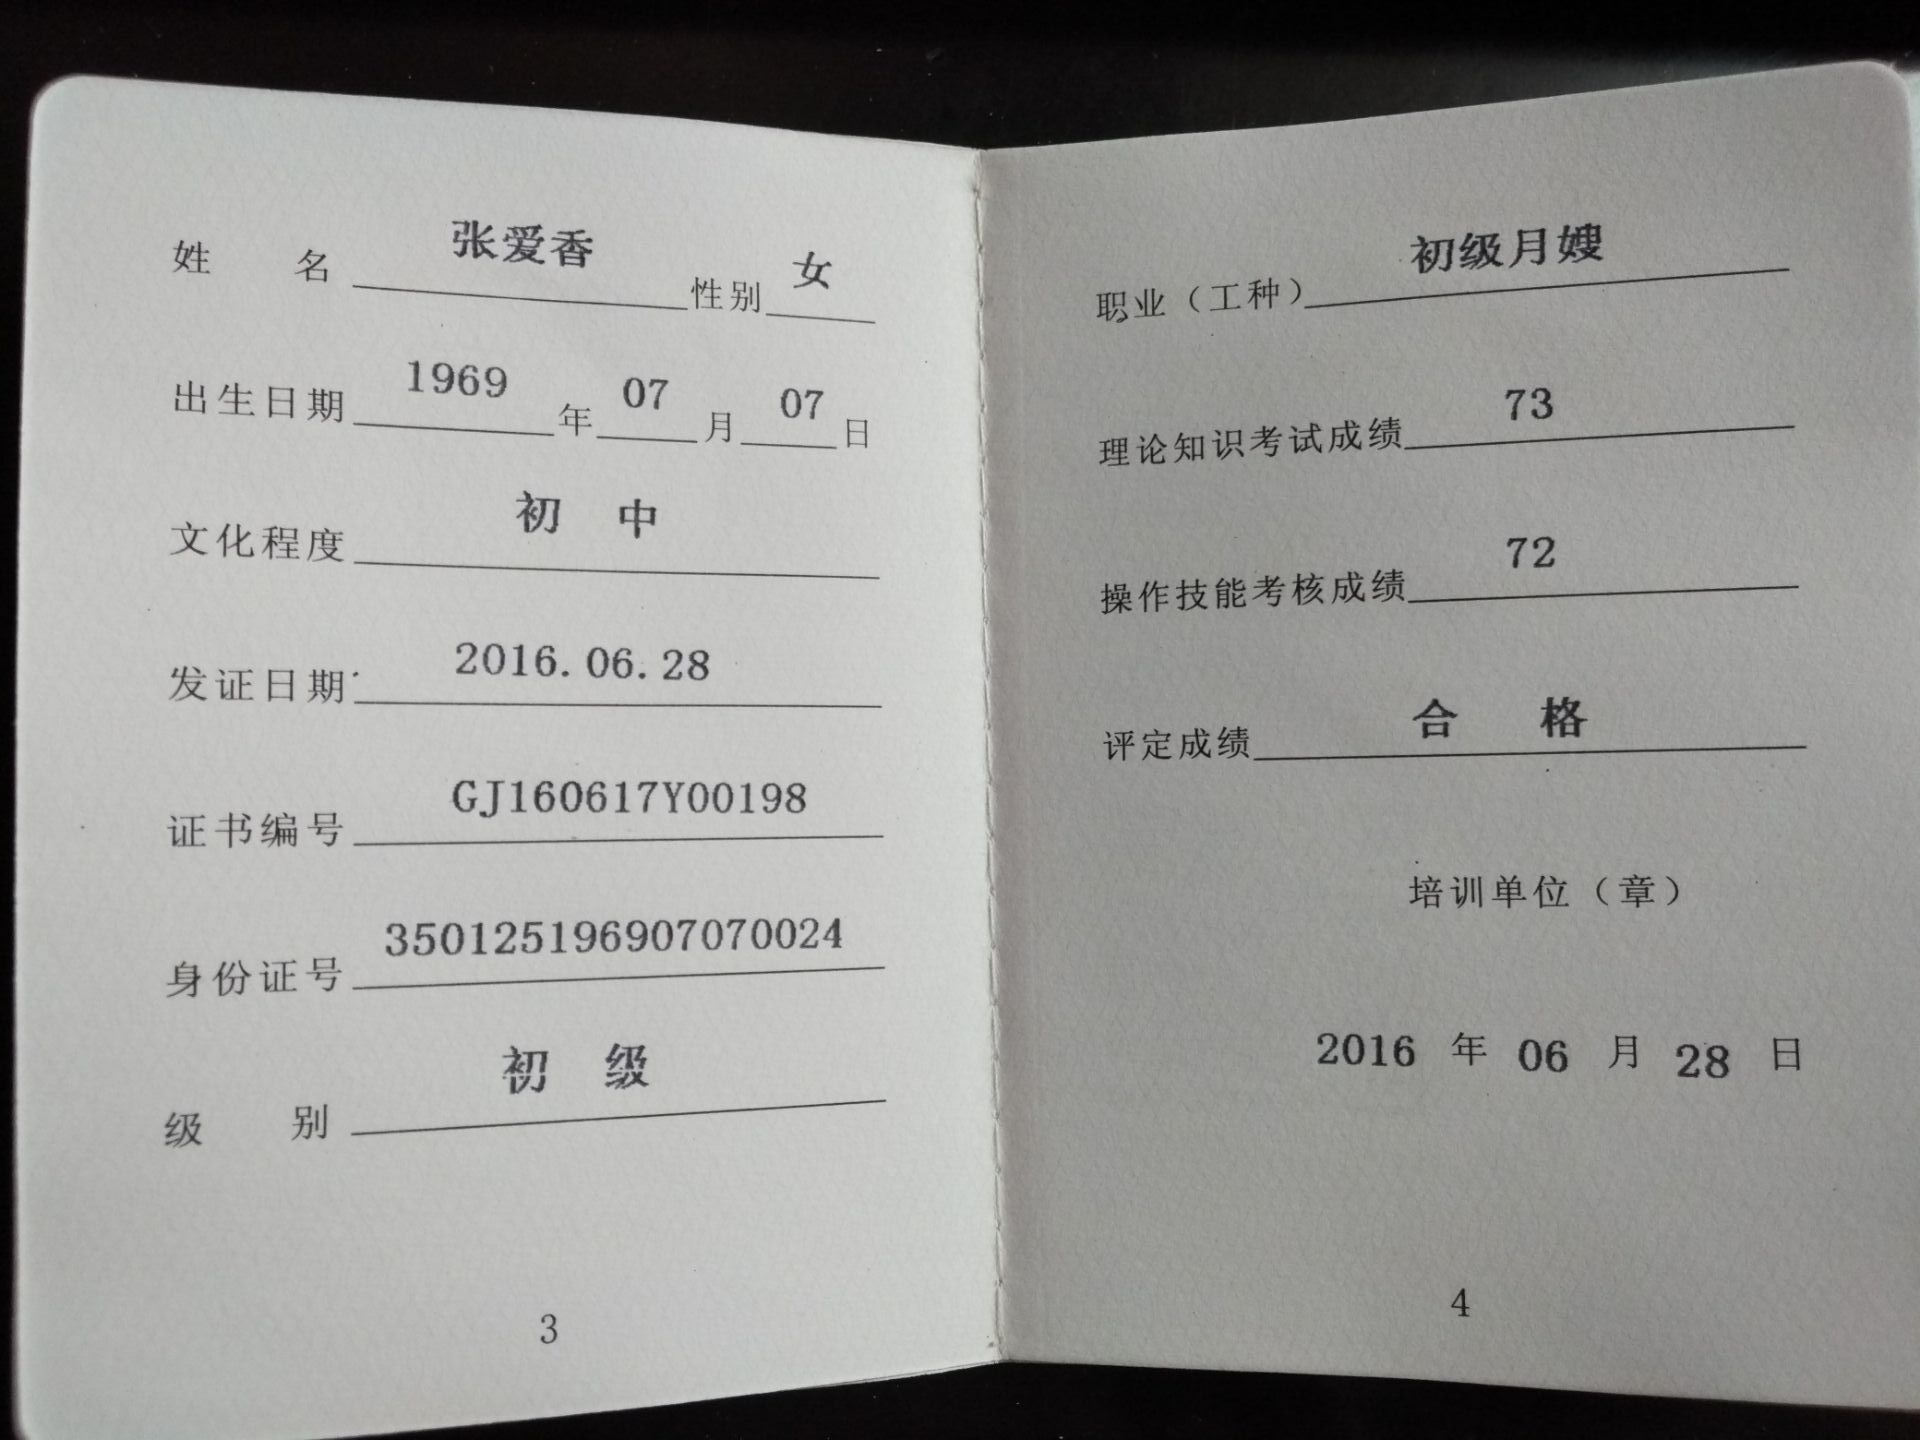 姓名 张爱香 性别 女
出生日期 1969 年 07 月 07 日
文化程度 初中
发证日期 2016.06.28
证书编号 GJ160617Y00198
身份证号 350125196907070024
级别 初级
3
职业（工种） 初级月嫂
理论知识考试成绩 73
操作技能考核成绩 72
评定成绩 合格
培训单位（章）
2016 年 06 月 28 日
4